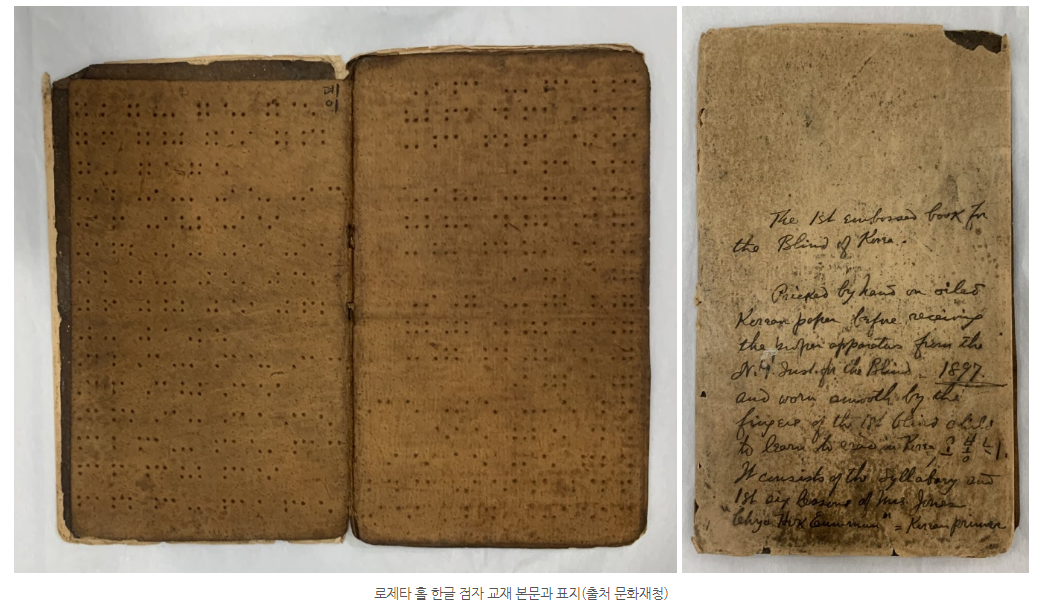 The 1st embossed book for
the Blind of Korea.
Pricked by hand on oiled
Korean paper before receiving
the proper apparatus from the
N.Y. Inst. for the Blind. 1897.
and worn smooth by the
fingers of the 1st blind child
to learn to read in Korea
It consists of the syllabary and
1st six lessons of Mrs Jones
Chyo Hok Eunmun" = Korean primer
로제타 홀 한글 점자 교재 본문과 표지(출처 문화재청)